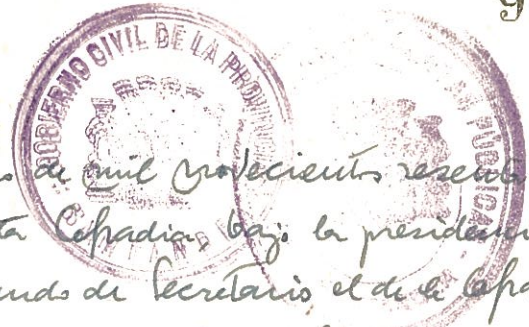 9
GOBIERNO CIVIL DE LA PROVIN
PUBLICA
de mil novecientos sesenta
ta Cofradia, bajo la presidenci
endo de Secretario el de la Cofra